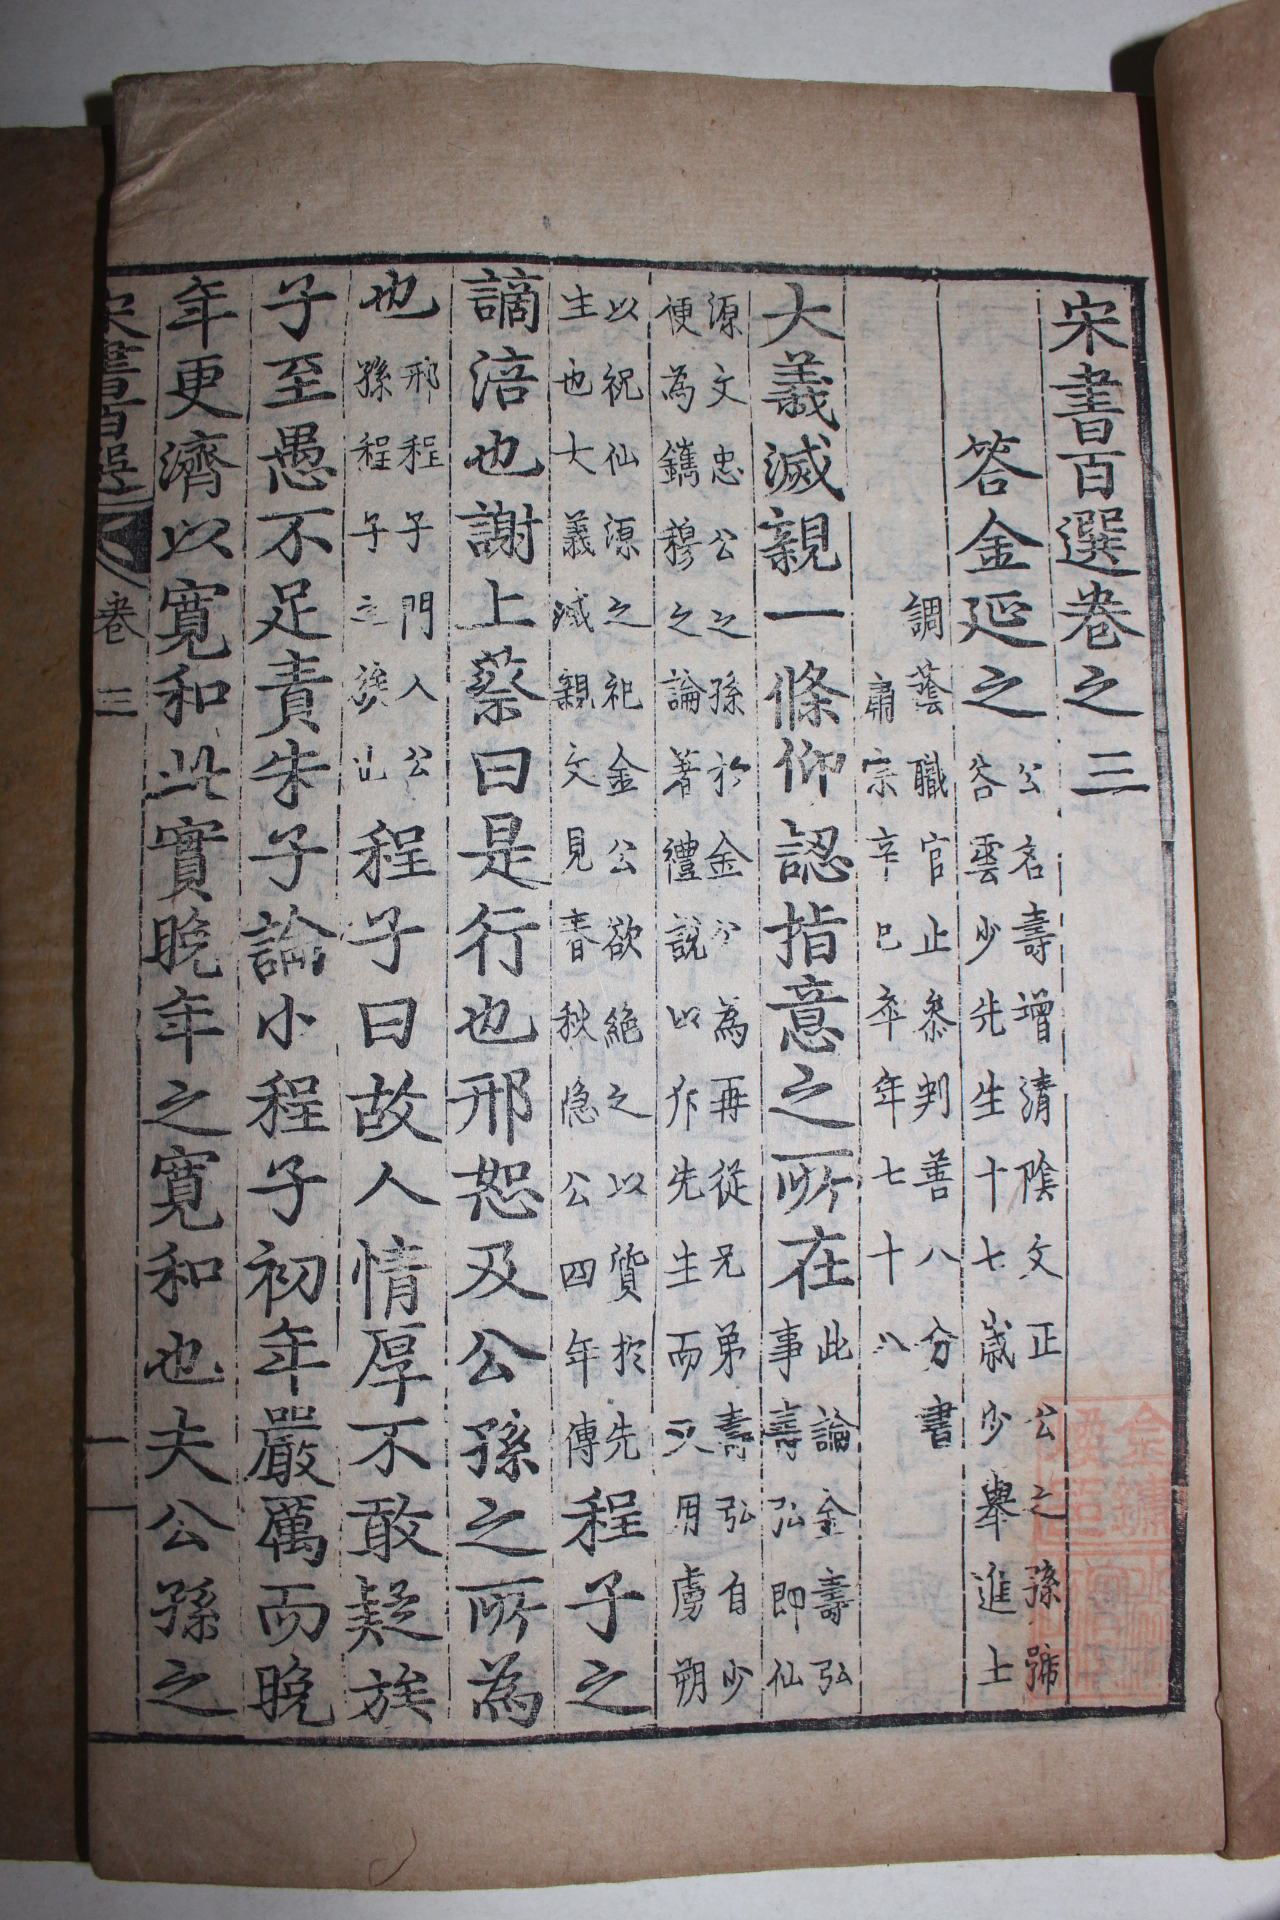 宋書百選卷之三
答金延之
公名壽增清陰文正公之孫號
谷雲少先生十七歲少舉進士
調蔭職官止參判善八分書
肅宗辛巳卒年七十八
大義滅親一條仰認指意之所在
此論金壽弘
事壽弘即仙
源文忠公之孫於金公為再從兄弟壽弘自少
便為鑴穆之論著禮說以斥先生而又用虜朔
以祝仙源之祀金公欲絕之以質於先
生也大義滅親文見春秋隐公四年傳
程子之
謫涪也謝上蔡曰是行也邢恕及公孫之所為
也
邢程子門人公
孫程子之族也
程子曰故人情厚不敢疑族
子至愚不足責朱子論小程子初年嚴厲而晚
年更濟以寬和此實晩年之寬和也夫公孫之
宋書百選
卷三
一